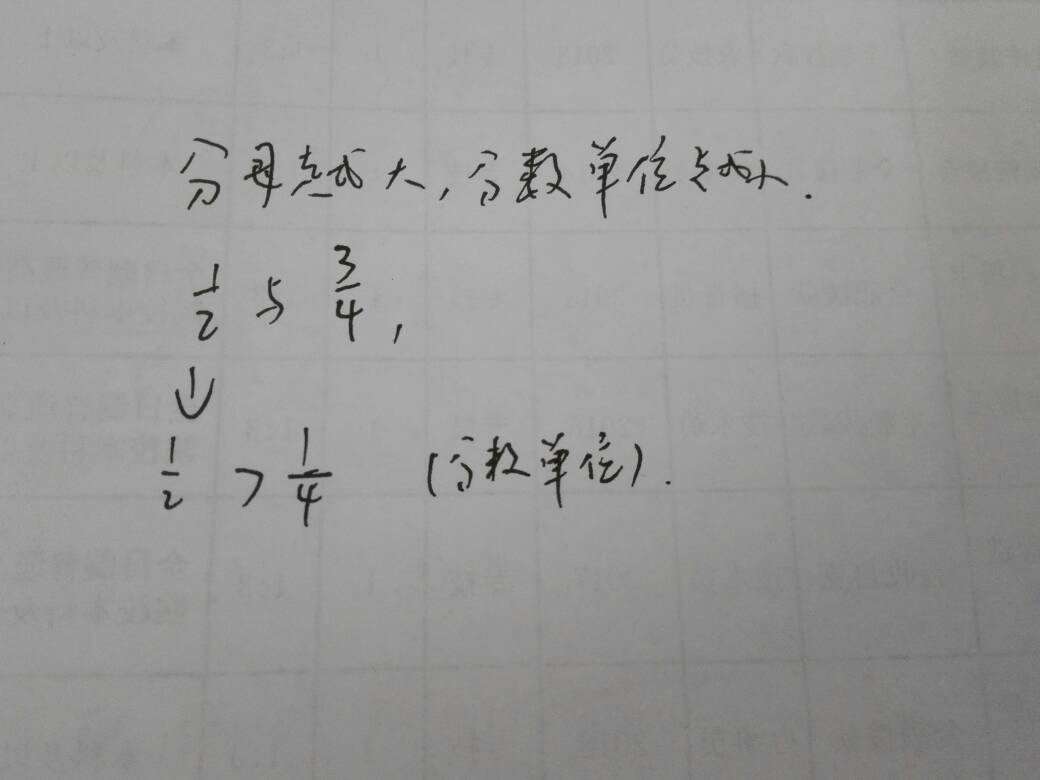 分母越大,分数单位越小.
1/2 与 3/4,
↓
1/2 > 1/4 (分数单位).